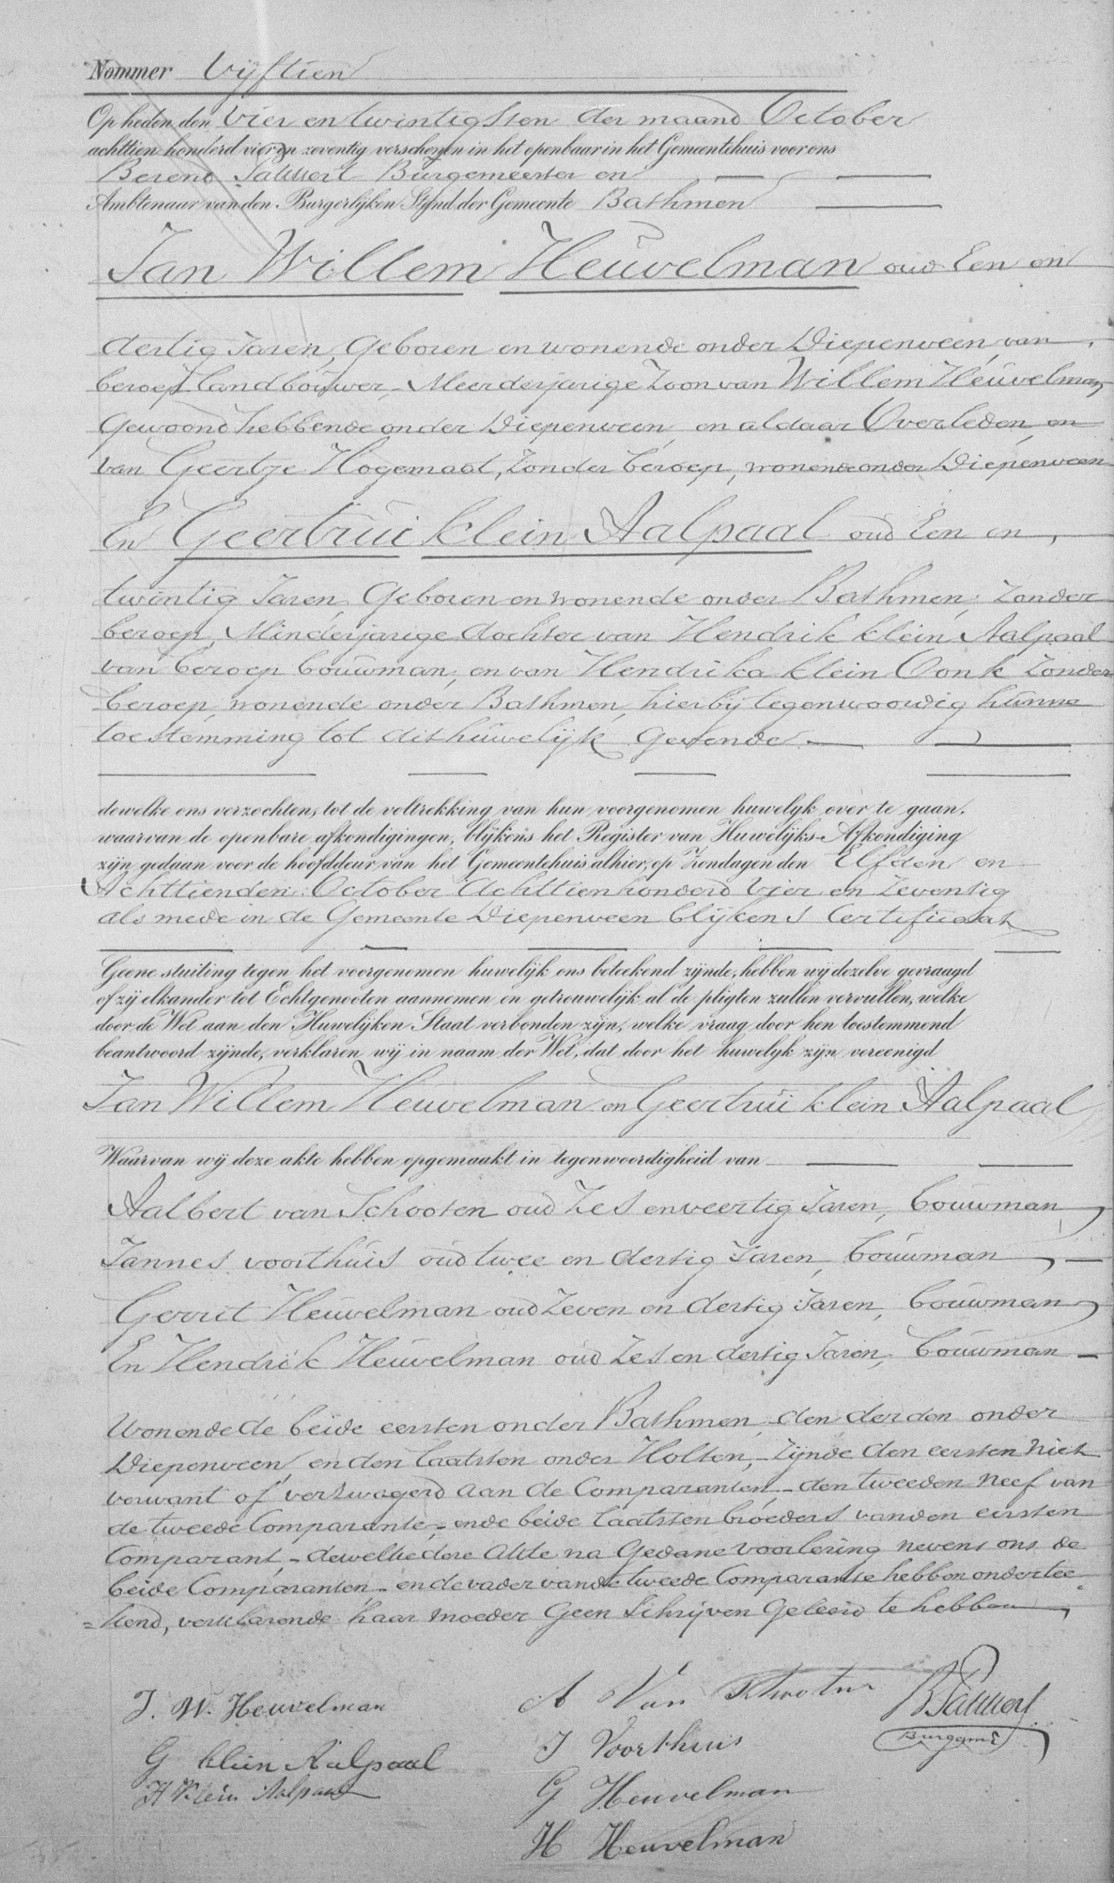 Nommer Vijftien
Op heden den Vier en twintigsten der maand October
achttien honderd vier en zeventig verschenen in het openbaar in het Gemeentehuis voor ons
Berend Burgemeester en
Ambtenaar van den Burgerlijken Stand der Gemeente Bathmen
Jan Willem Heuvelman oud Een en
dertig Jaren, Geboren en wonende onder Diepenveen, van
beroep landbouwer, Meerderjarige Zoon van Willem Heuvelman,
Gewoond hebbende onder Diepenveen, en aldaar Overleden, en
van Geertje Hogemaat, Zonder beroep, wonende onder Diepenveen
En Geertrui klein Aalpaal oud Een en
twintig Jaren, Geboren en wonende onder Bathmen, Zonder
beroep, Minderjarige dochter van Hendrik klein Aalpaal
van beroep bouwman, en van Hendrika klein Oonk Zonder
beroep, wonende onder Bathmen, hierbij tegenwoordig hunne
toestemming tot dit huwelijk Gevende
dewelke ons verzochten, tot de voltrekking van hun voorgenomen huwelyk over te gaan,
waarvan de openbare afkondigingen, blijkens het Register van Huwelijks-Afkondiging
zijn gedaan voor de hoofddeur van het Gemeentehuis alhier, op Zondagen den Elfden en
Achttienden October Achttienhonderd Vier en Zeventig
als mede in de Gemeente Diepenveen blijkens Certificaat
Geene stuiting tegen het voorgenomen huwelijk ons beteekend zijnde, hebben wij dezelve gevraagd
of zij elkander tot Echtgenooten aannemen en getrouwelijk al de pligten zullen vervullen, welke
door de Wet aan den Huwelijken Staat verbonden zijn, welke vraag door hen toestemmend
beantwoord zijnde, verklaren wij in naam der Wet, dat door het huwelyk zijn vereenigd
Jan Willem Heuvelman en Geertrui klein Aalpaal
Waarvan wij deze akte hebben opgemaakt in tegenwoordigheid van
Aalbert van Schooten oud Zes en veertig Jaren, bouwman,
Jannes voorthuis oud twee en dertig Jaren, bouwman,
Gerrit Heuvelman oud Zeven en dertig Jaren, bouwman,
En Hendrik Heuvelman oud Zes en dertig Jaren, bouwman
Wonende de beide eersten onder Bathmen, den derden onder
Diepenveen, en den laatsten onder Holten, Zijnde den eersten niet
verwant of verzwagerd aan de Comparanten, den tweeden neef van
de tweede Comparante, en de beide laatsten broeders van den eersten
Comparant, dewelke deze Akte na Gedane voorlezing nevens ons de
beide Comparanten en de vader van de tweede Comparante hebben ondertee
=kend, verklarende haar moeder Geen Schrijven Geleerd te hebben,
J. W. Heuvelman
G klein Aalpaal
H Klein Aalpaal
A Van Schooten
J Voorthuis
G Heuvelman
H Heuvelman
Burggmr